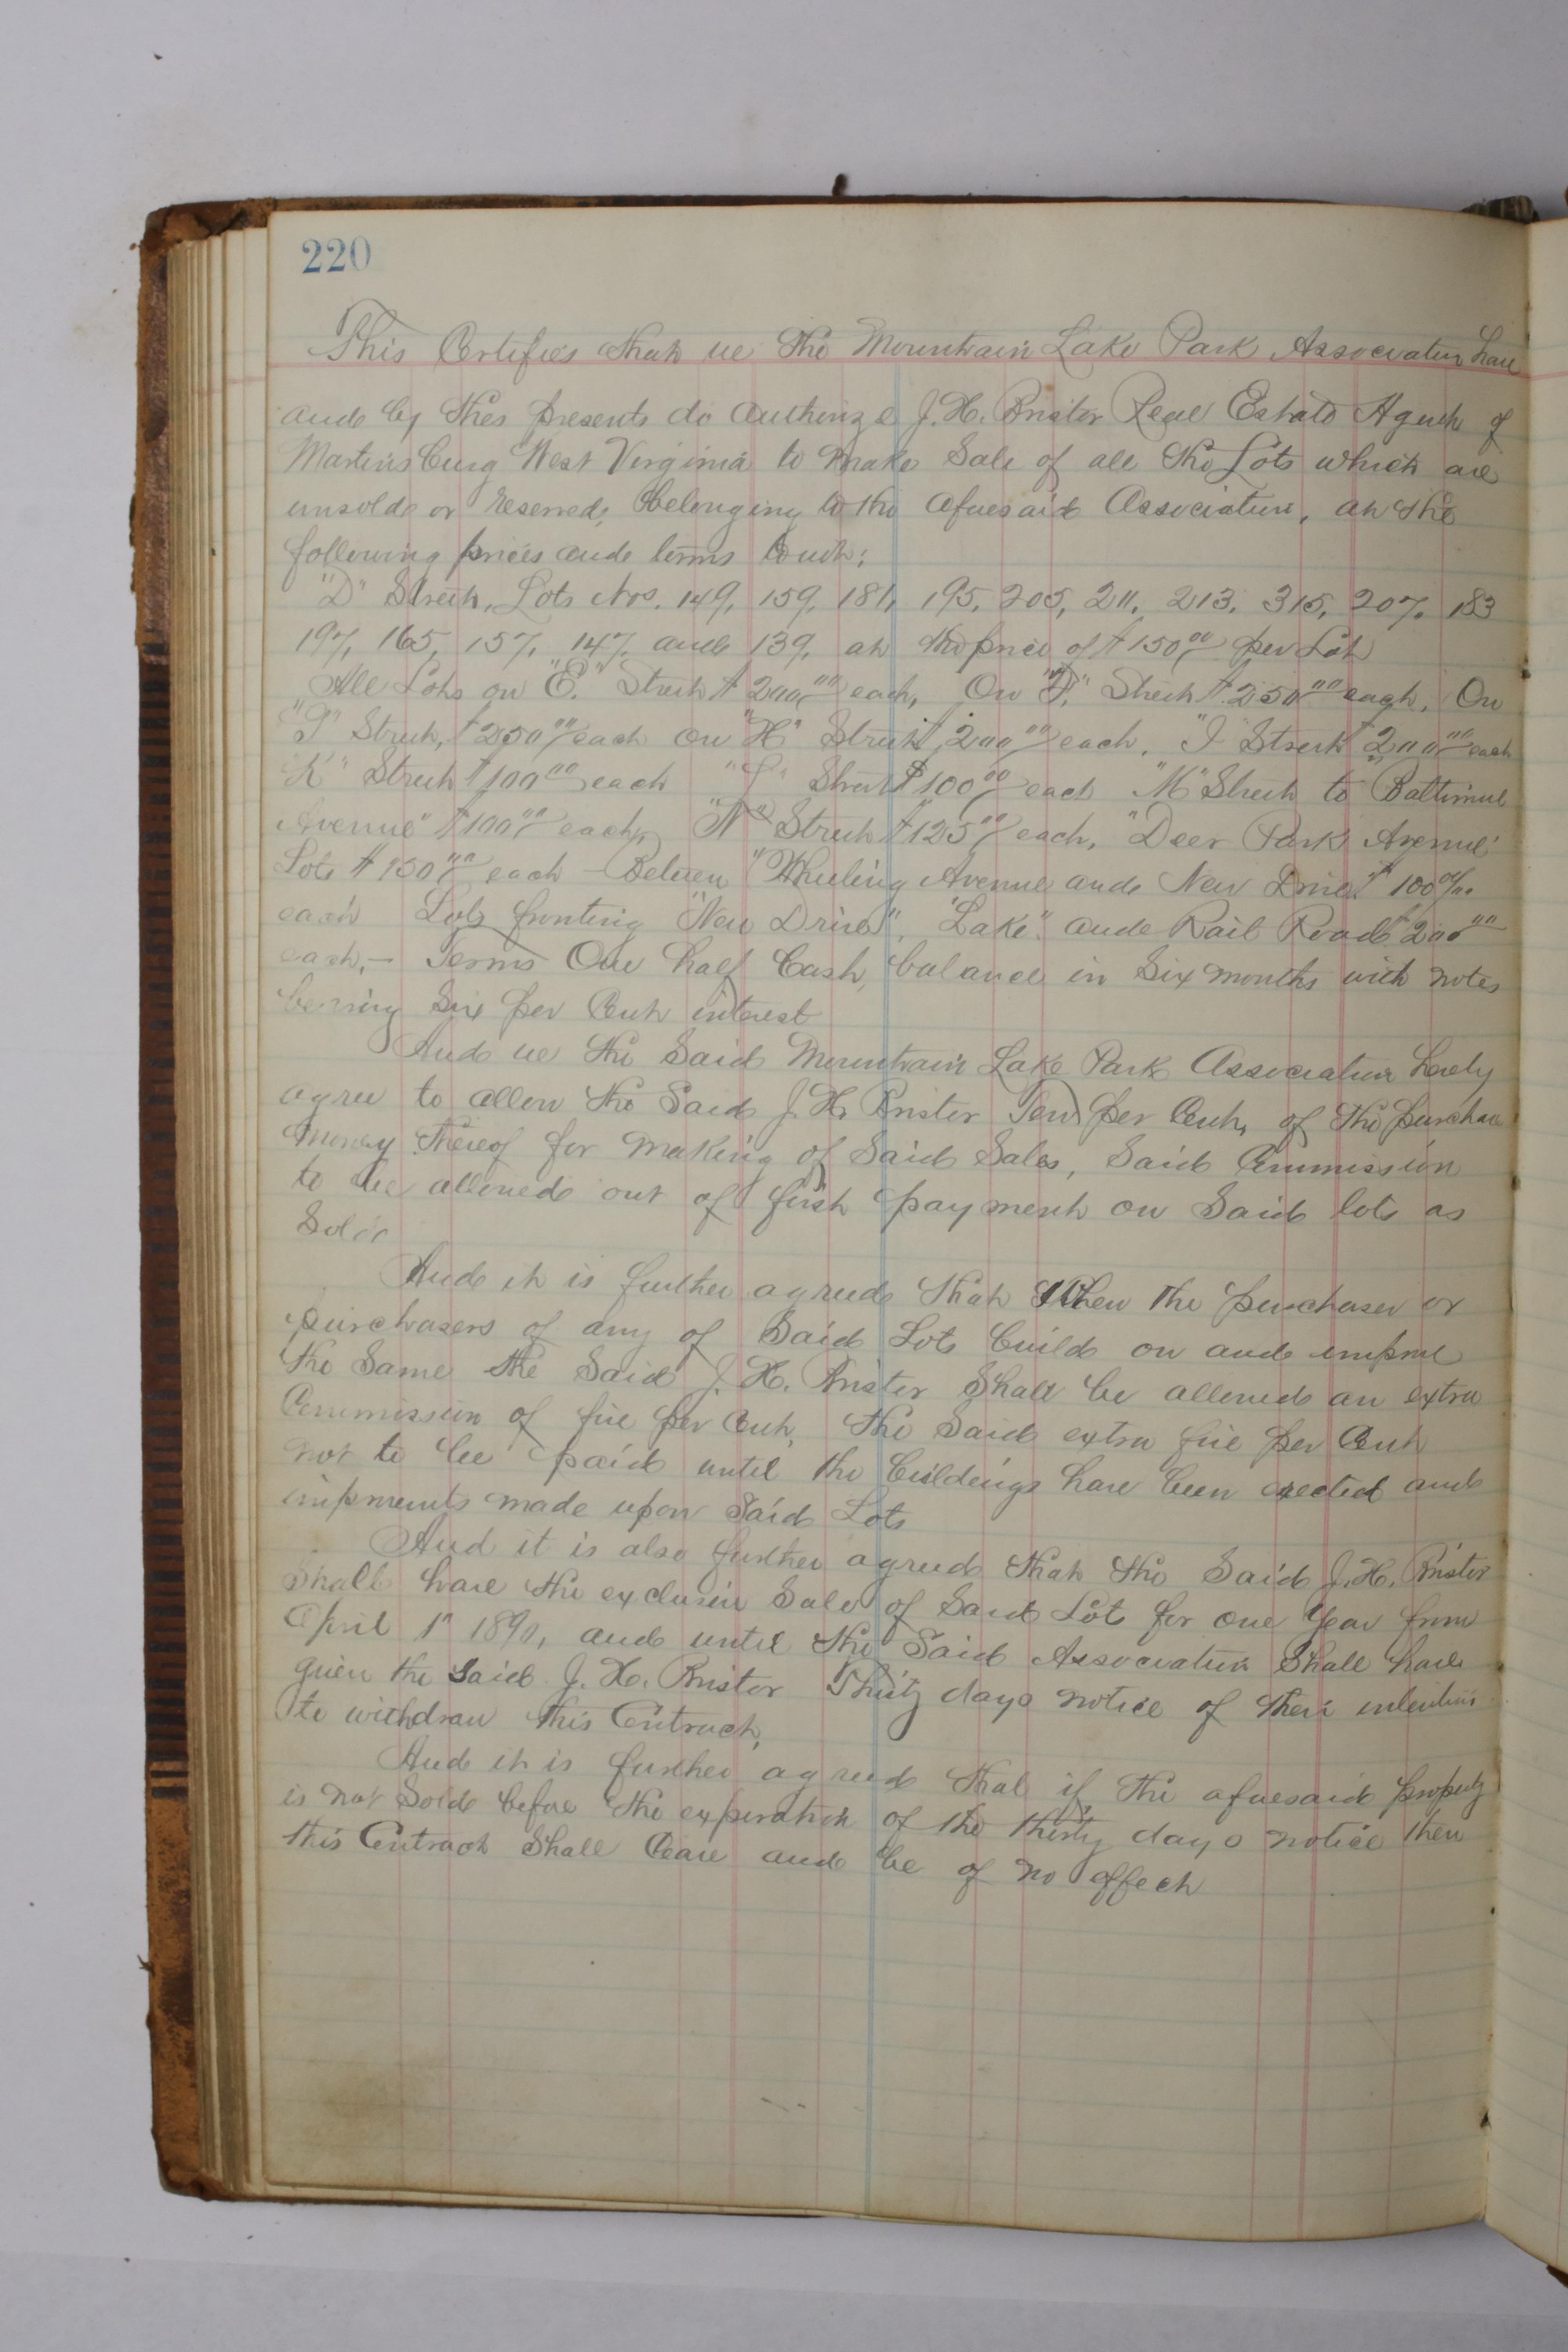 220
This Certifies that we The Mountain Lake Park Association have
and by these presents do authorize J. H. Bristor Real Estate Agent of
Martinsburg West Virginia to make Sale of all the Lots which are
unsold or reserved, belonging to the aforesaid Association, at the
following prices and terms to wit:
"D" Street, Lots Nos. 149, 159, 181, 195, 205, 211, 213, 315, 207, 183
197, 165, 157, 147, and 139, at the price of $150 00 per Lot
All Lots on "E." Street $200 00 each, On "F." Street $250 00 each, On
"G" Street, $250 00 each On "H" Street $200 00 each, "I" Street $200 00 each
"K" Street $100 00 each "L" Street $100 00 each "M" Street to "Baltimore
Avenue" $100 00 each, "N" Street $125 00 each, "Deer Park Avenue"
Lots $150 00 each - Between "Wheeling Avenue and New Drive" $100 00
each Lots fronting "New Drive", "Lake" and Rail Road $200 00
each, - Terms One half Cash, balance in Six months with notes
bearing Six per Cent interest
And we the Said Mountain Lake Park Association hereby
agree to allow the Said J. H. Bristor Ten per Cent, of the purchase
money thereof for making of Said Sales, Said Commission
to be allowed out of first payment on Said lots as
Sold
And it is further agreed that When the purchaser or
purchasers of any of Said Lots build on and improve
the Same the Said J. H. Bristor Shall be allowed an extra
Commission of five per Cent, the Said extra five per Cent
not to be paid until the buildings have been erected and
improvements made upon Said Lots
And it is also further agreed that the Said J. H. Bristor
Shall have the exclusive Sale of Said Lots for one Year from
April 1st 1890, and until the Said Association Shall have
given the Said J. H. Bristor Thirty days notice of their intentions
to withdraw this Contract,
And it is further agreed that if the aforesaid property
is not Sold before the expiration of the thirty days notice then
this Contract Shall Cease and be of no effect